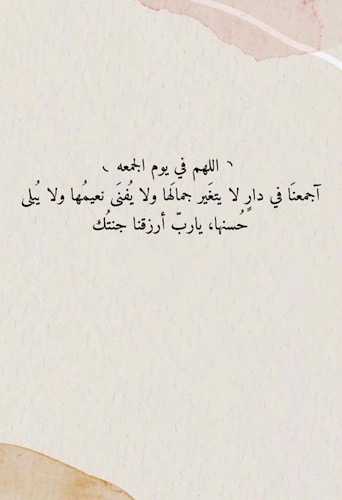 ❨ اللهم في يوم الجمعه ❩
آجمعنَا في دارٍ لا يتغَير جمالَها ولا يُفنَى نعيمُها ولا يُبلى
حُسنها، ياربّ أرزقنا جنتُك